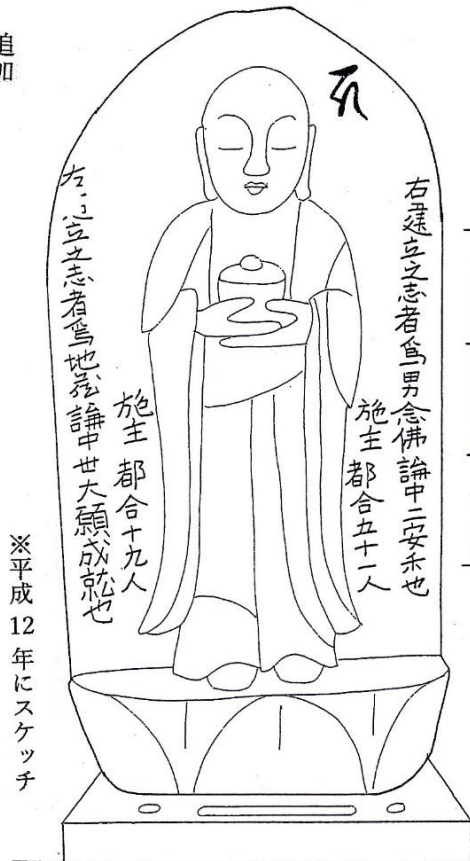 追加
右建立之志者爲男念佛講中二安禾也
施主 都合五十一人
施主 都合十九人
立之志者爲地蔵講中世大願成就也
※平成12年にスケッチ